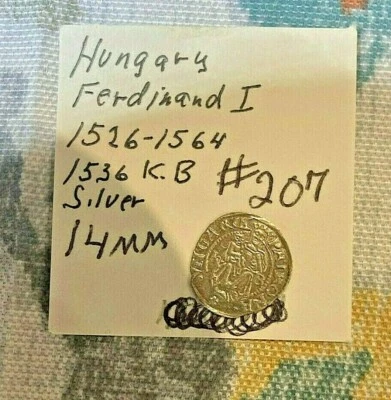 Hungary
Ferdinand I
1526-1564
1536 K.B
Silver
#207
14MM